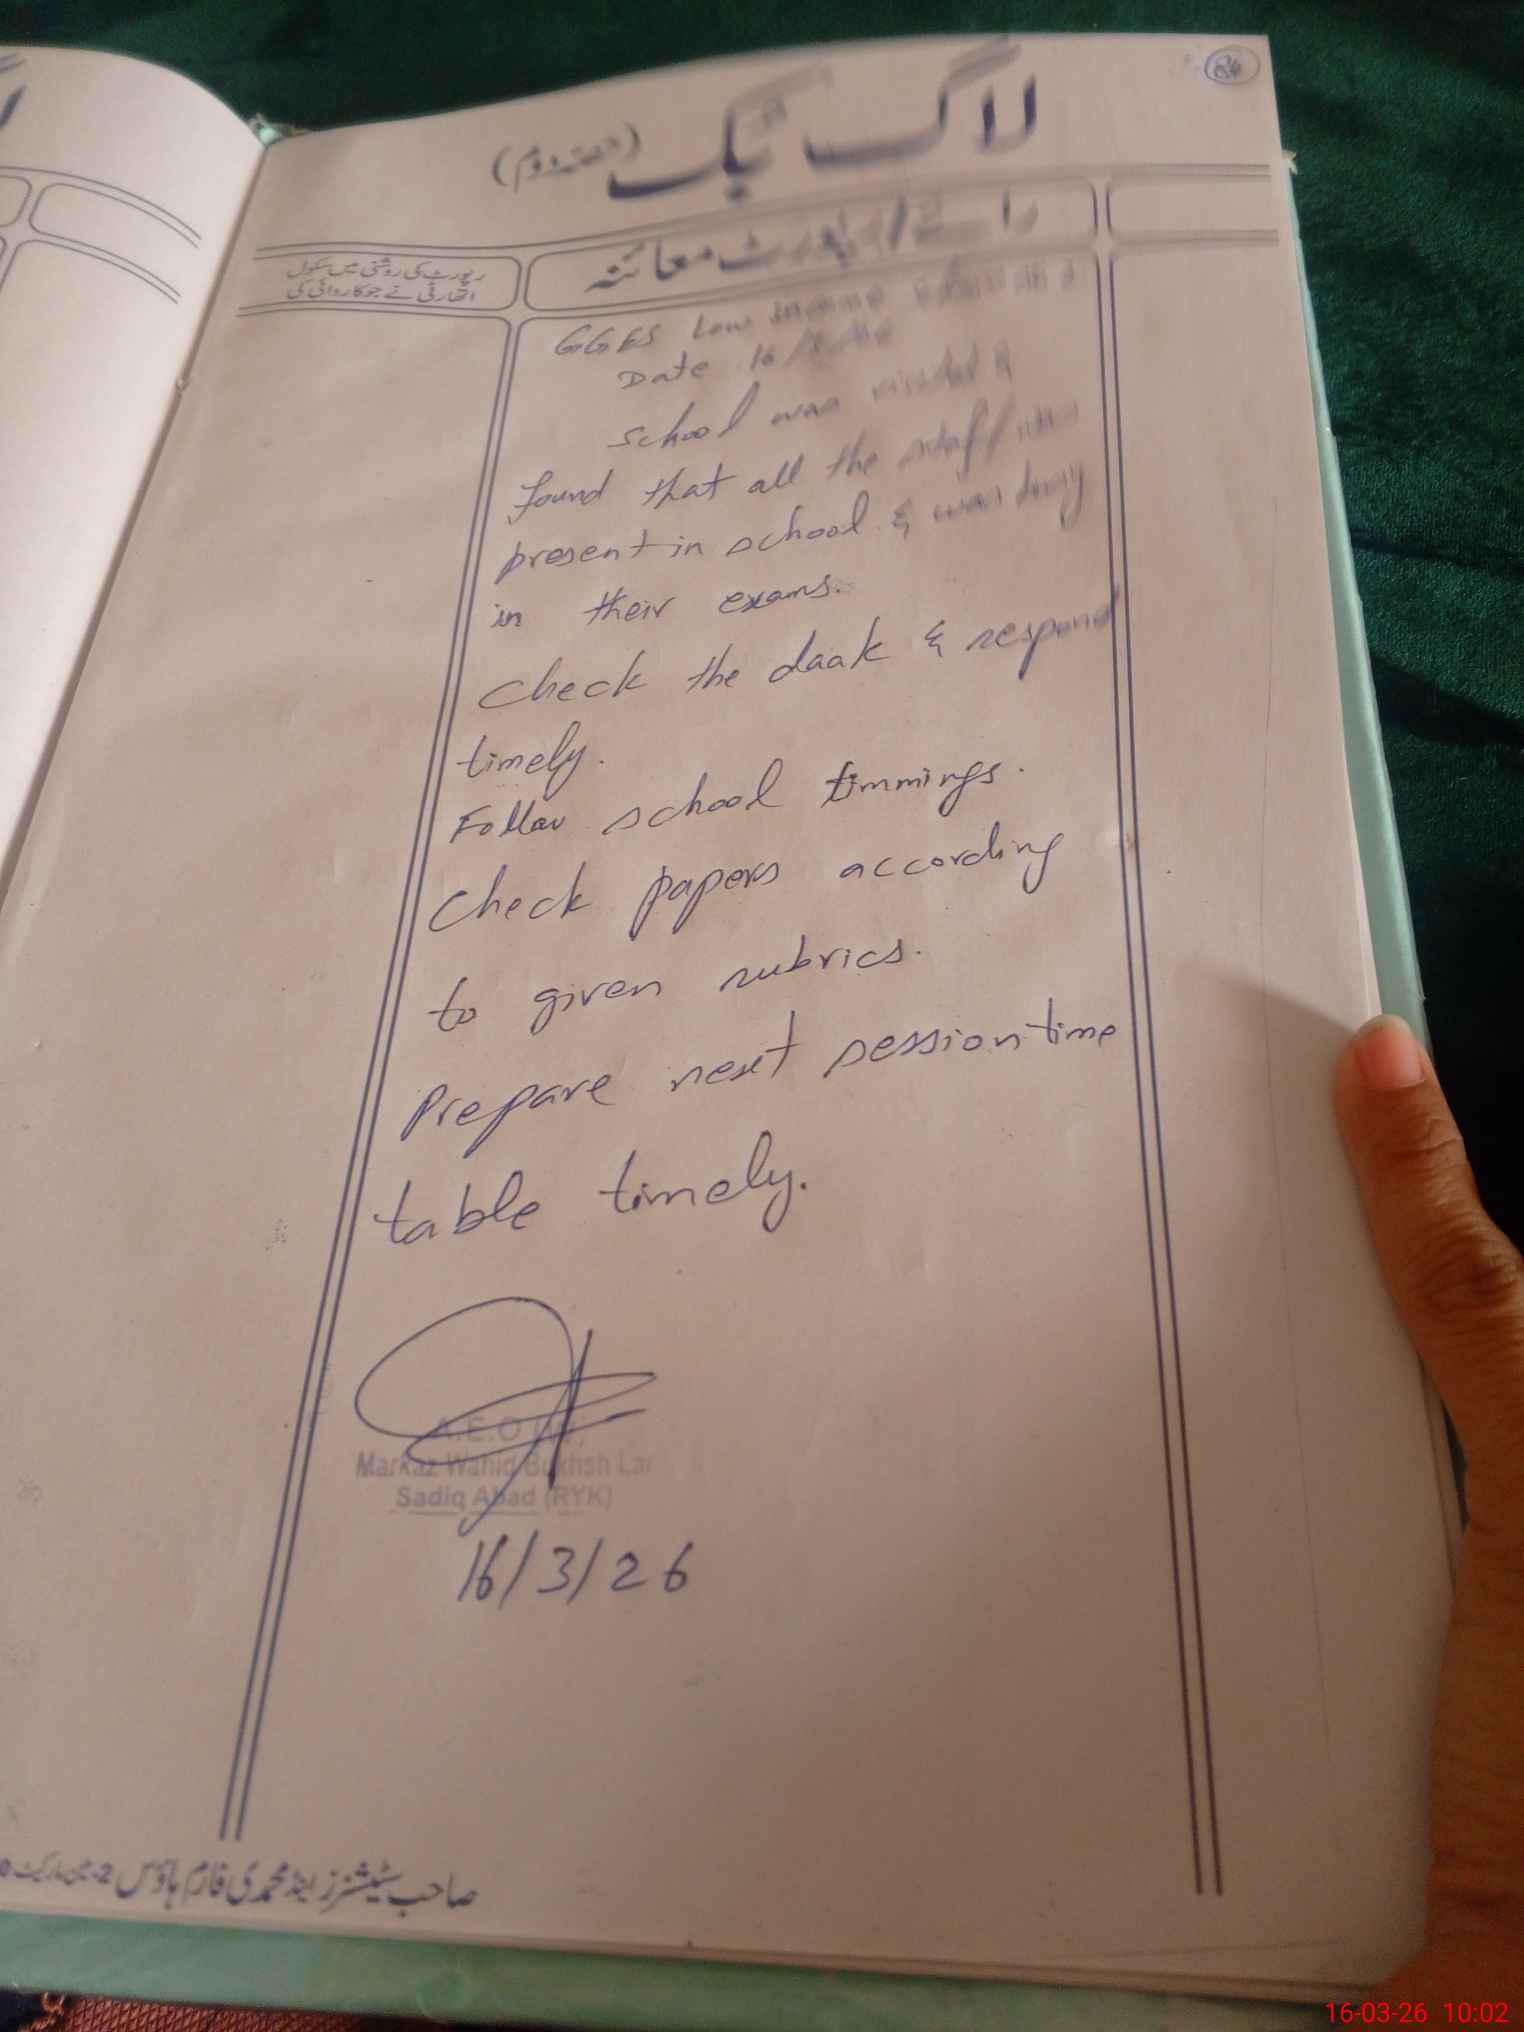 84
لاگ بک (حصہ دوم)
رائے / رپورٹ معائنہ
رپورٹ کی روشنی میں سکول
اتھارٹی نے جو کاروائی کی
GGES Low Income
Date 16/
School was visited &
found that all the staff
present in school & was busy
in their exams.
Check the daak & respond
timely.
Follow school timmings.
Check papers according
to given rubrics.
Prepare next session time
table timely.
A.E.O
Markaz Wahid Bukhsh Lar
Sadiq Abad (RYK)
16/3/26
صاحب سٹیشنرز اینڈ محمدی فارم ہاؤس 2-
16-03-26 10:02